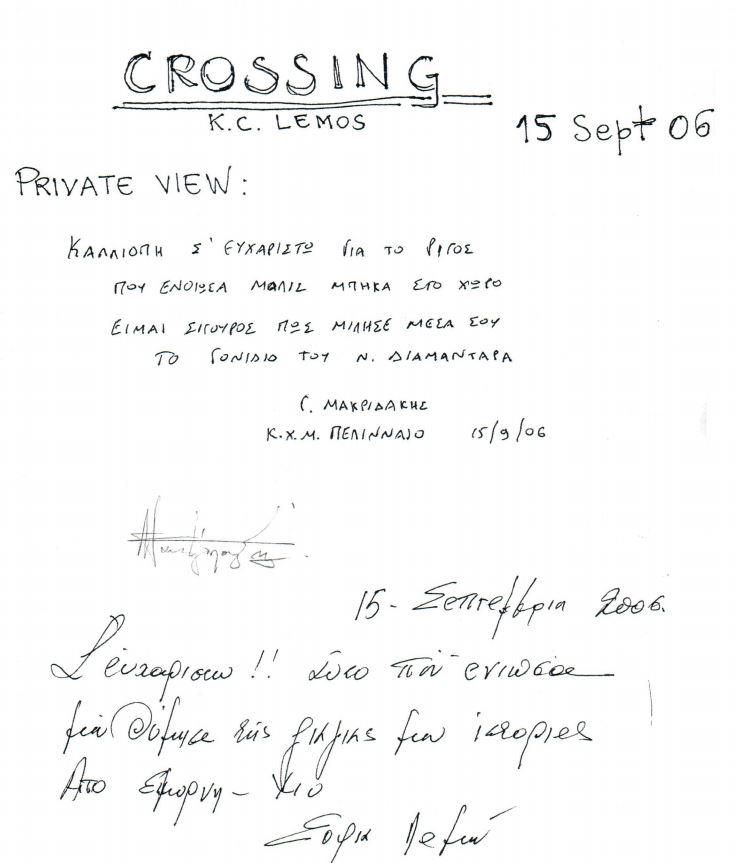 CROSSING
K.C. LEMOS
15 Sept 06
PRIVATE VIEW:
ΚΑΛΛΙΟΠΗ Σ' ΕΥΧΑΡΙΣΤΩ ΓΙΑ ΤΟ ΡΙΓΟΣ
ΠΟΥ ΕΝΟΙΩΣΑ ΜΟΛΙΣ ΜΠΗΚΑ ΣΤΟ ΧΩΡΟ
ΕΙΜΑΙ ΣΙΓΟΥΡΟΣ ΠΩΣ ΜΙΛΗΣΕ ΜΕΣΑ ΣΟΥ
ΤΟ ΓΟΝΙΔΙΟ ΤΟΥ Ν. ΔΙΑΜΑΝΤΑΡΑ
Γ. ΜΑΚΡΙΔΑΚΗΣ
Κ.Χ.Μ. ΠΕΛΙΝΝΑΙΟ 15/9/06
15 - Σεπτεμβρια 2006.
Σ' ευχαριστω!! που ενιωσα
μου θύμησε της γιαγιας μου ιστοριες
Απο Σμυρνη - Χιο
Σοφια Λεμού